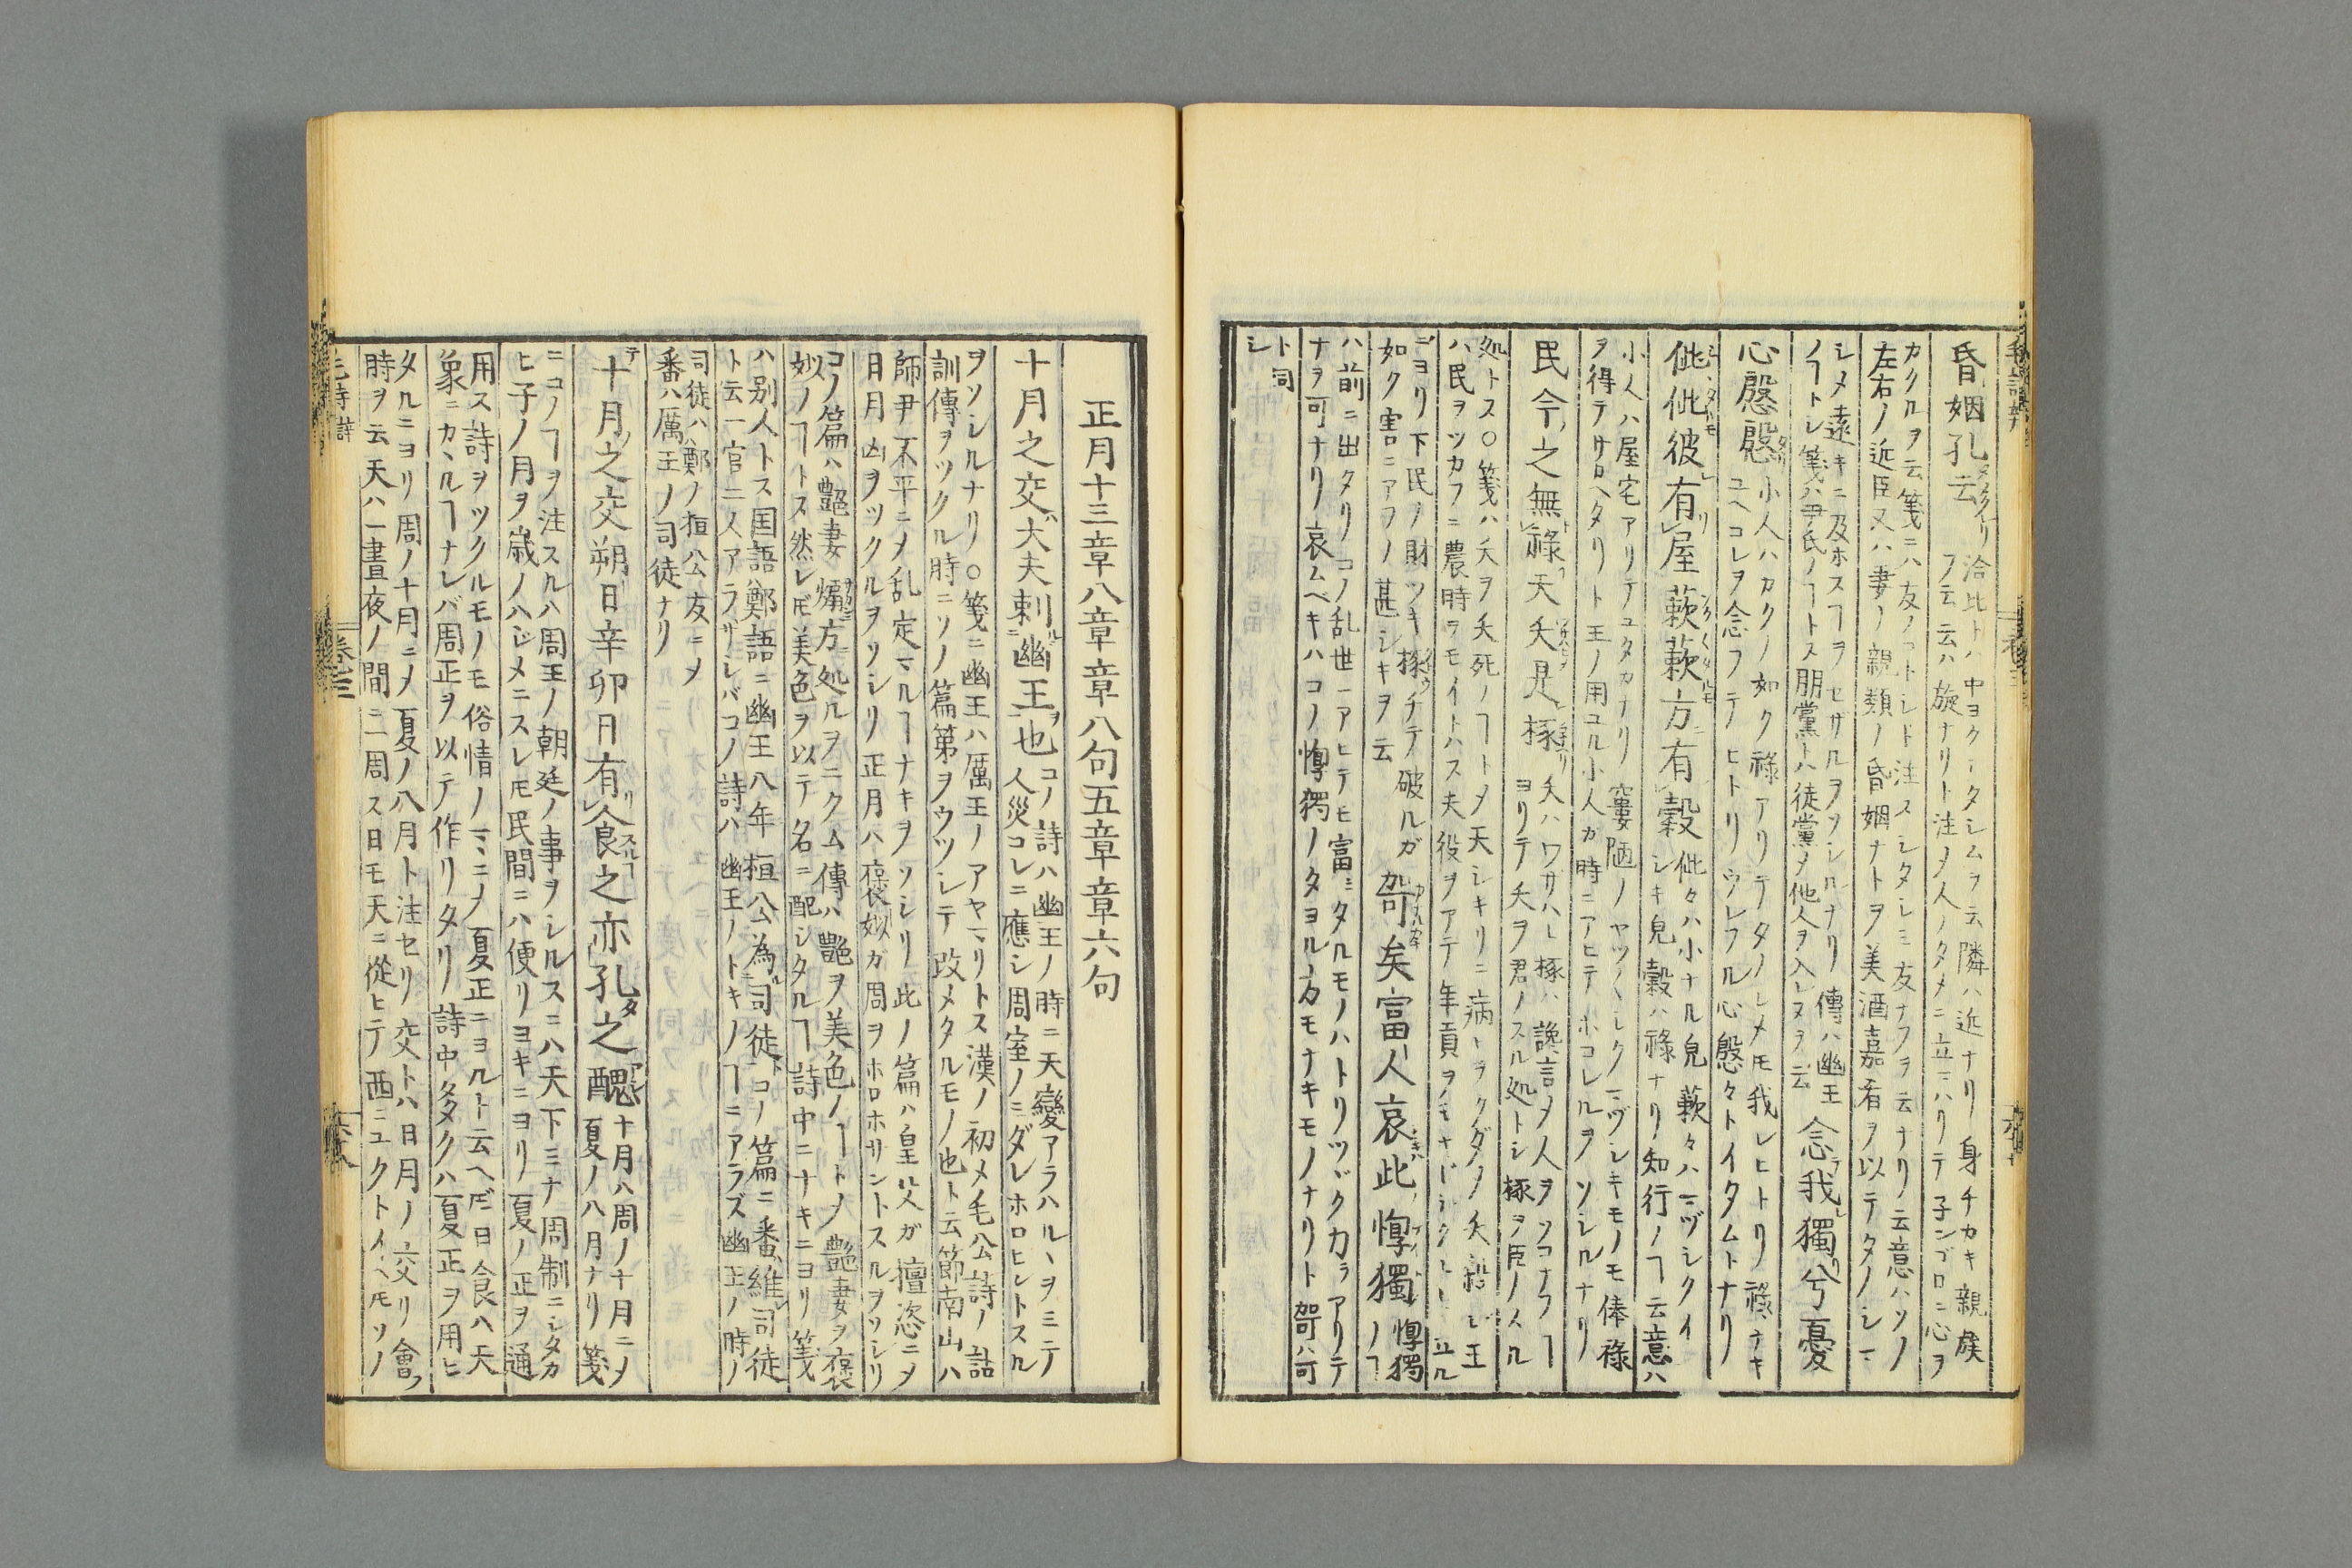 昏姻孔云
洽比トハ中ヨクシタシムヲ云隣ハ近ナリ身チカキ親族
ヲ云云ハ旋ナリト注メ人ノタメニ立マハリテ子ンゴロニ心ヲ
カクルヲ云箋ニハ友ノコトシト注スシタシミ友ナフヲ云ナリ云意ハソノ
左右ノ近臣又ハ妻ノ親類ノ昏姻ナトヲ美酒嘉肴ヲ以テタノシマ
シメ遠キニ及ホスヿヲセザルヲソシルナリ傳ハ幽王
ノヿトシ箋ハ尹氏ノヿトス朋黨トハ徒黨メ他人ヲ入レヌヲ云
念我獨兮憂
心慇慇
小人ハカクノ如ク祿アリテタノシメ𪜈我レヒトリ祿ナキ
ユヘコレヲ念フテヒトリウレフル心慇々トイタムトナリ
佌佌彼有屋蔌蔌方有穀
佌々ハ小ナル皃蔌々ハマヅシクイ
シキ皃穀ハ祿ナリ知行ノヿ云意ハ
小人ハ屋宅アリテユタカナリ窶陋ノヤツ〱シクマヅシキモノモ俸祿
ヲ得テサカヘタリト王ノ用ユル小人カ時ニアヒテホコレルヲソシルナリ
民今之無祿天夭是椓
夭ハワザハヒ椓ハ讒言メ人ヲソコナフヿ
ヨリテ夭ヲ君ノスル処トシ椓ヲ臣ノスル
処トス○箋ハ夭ヲ夭死ノヿトメ天シキリニ病ヲクダメ夭殺シ王
ハ民ヲツカフニ農時ヲモイトハス夫役ヲアテ年貢ヲ
ニヨリ下民ノ財ツキ椓ウチテ破ルガ
如ク害ニアフノ甚シキヲ云
哿矣富人哀此惸獨
惸獨
ノヿ
ハ前ニ出タリコノ乱世ニアヒテモ富ミタルモノハトリツヾク力ラアリテ
ナヲ可ナリ哀ムベキハコノ惸獨ノタヨル方モナキモノナリト哿ハ可
ト同
シ
正月十三章八章章八句五章章六句
十月之交大夫刺幽王也
コノ詩ハ幽王ノ時ニ天變アラハルヽヲミテ
人災コレニ應シ周室ノミダレホロヒントスル
ヲソシルナリ○箋ニ幽王ハ厲王ノアヤマリトス漢ノ初メ毛公詩ノ詁
訓傳ヲツクル時ニソノ篇第ヲウツシテ改メタルモノ也ト云節南山ハ
師尹不平ニメ乱定マルヿナキヲソシリ此ノ篇ハ皇父ガ擅恣ニメ
日月凶ヲツクルヲソシリ正月ハ襃姒ガ周ヲホロホサントスルヲソシリ
コノ篇ハ豔妻煽方処ルヲニクム傳ハ豔ヲ美色ノヿトメ豔妻ヲ襃
姒ノヿトス然レ𪜈美色ヲ以テ名ニ配シタルヿ詩中ニナキニヨリ箋
ハ別人トス国語鄭語ニ幽王八年桓公為司徒トコノ篇ニ番維司徒
ト云一官二人アラザレバコノ詩ハ幽王ノトキノヿニアラズ幽王ノ時ノ
司徒ハ鄭ノ桓公友ニメ
番ハ厲王ノ司徒ナリ
十月之交朔日辛卯日有食之亦孔之醜
十月ハ周ノ十月ニメ
夏ノ八月ナリ箋
ニコノヿヲ注スルハ周王ノ朝廷ノ事ヲシルスニハ天下ミナ周制ニシタカ
ヒ子ノ月ヲ歳ノハジメニスレ𪜈民間ニハ便リヨキニヨリ夏ノ正ヲ通
用ス詩ヲツクルモノモ俗情ノマヽニメ夏正ニヨルト云ヘ𪜈日食ハ天
象ニカヽルヿナレバ周正ヲ以テ作リタリ詩中多クハ夏正ヲ用ヒ
タルニヨリ周ノ十月ニメ夏ノ八月ト注セリ交トハ日月ノ交リ會フ
時ヲ云天ハ一晝夜ノ間ニ一周ス日モ天ニ從ヒテ西ニユクトイヘ𪜈ソノ
毛詩